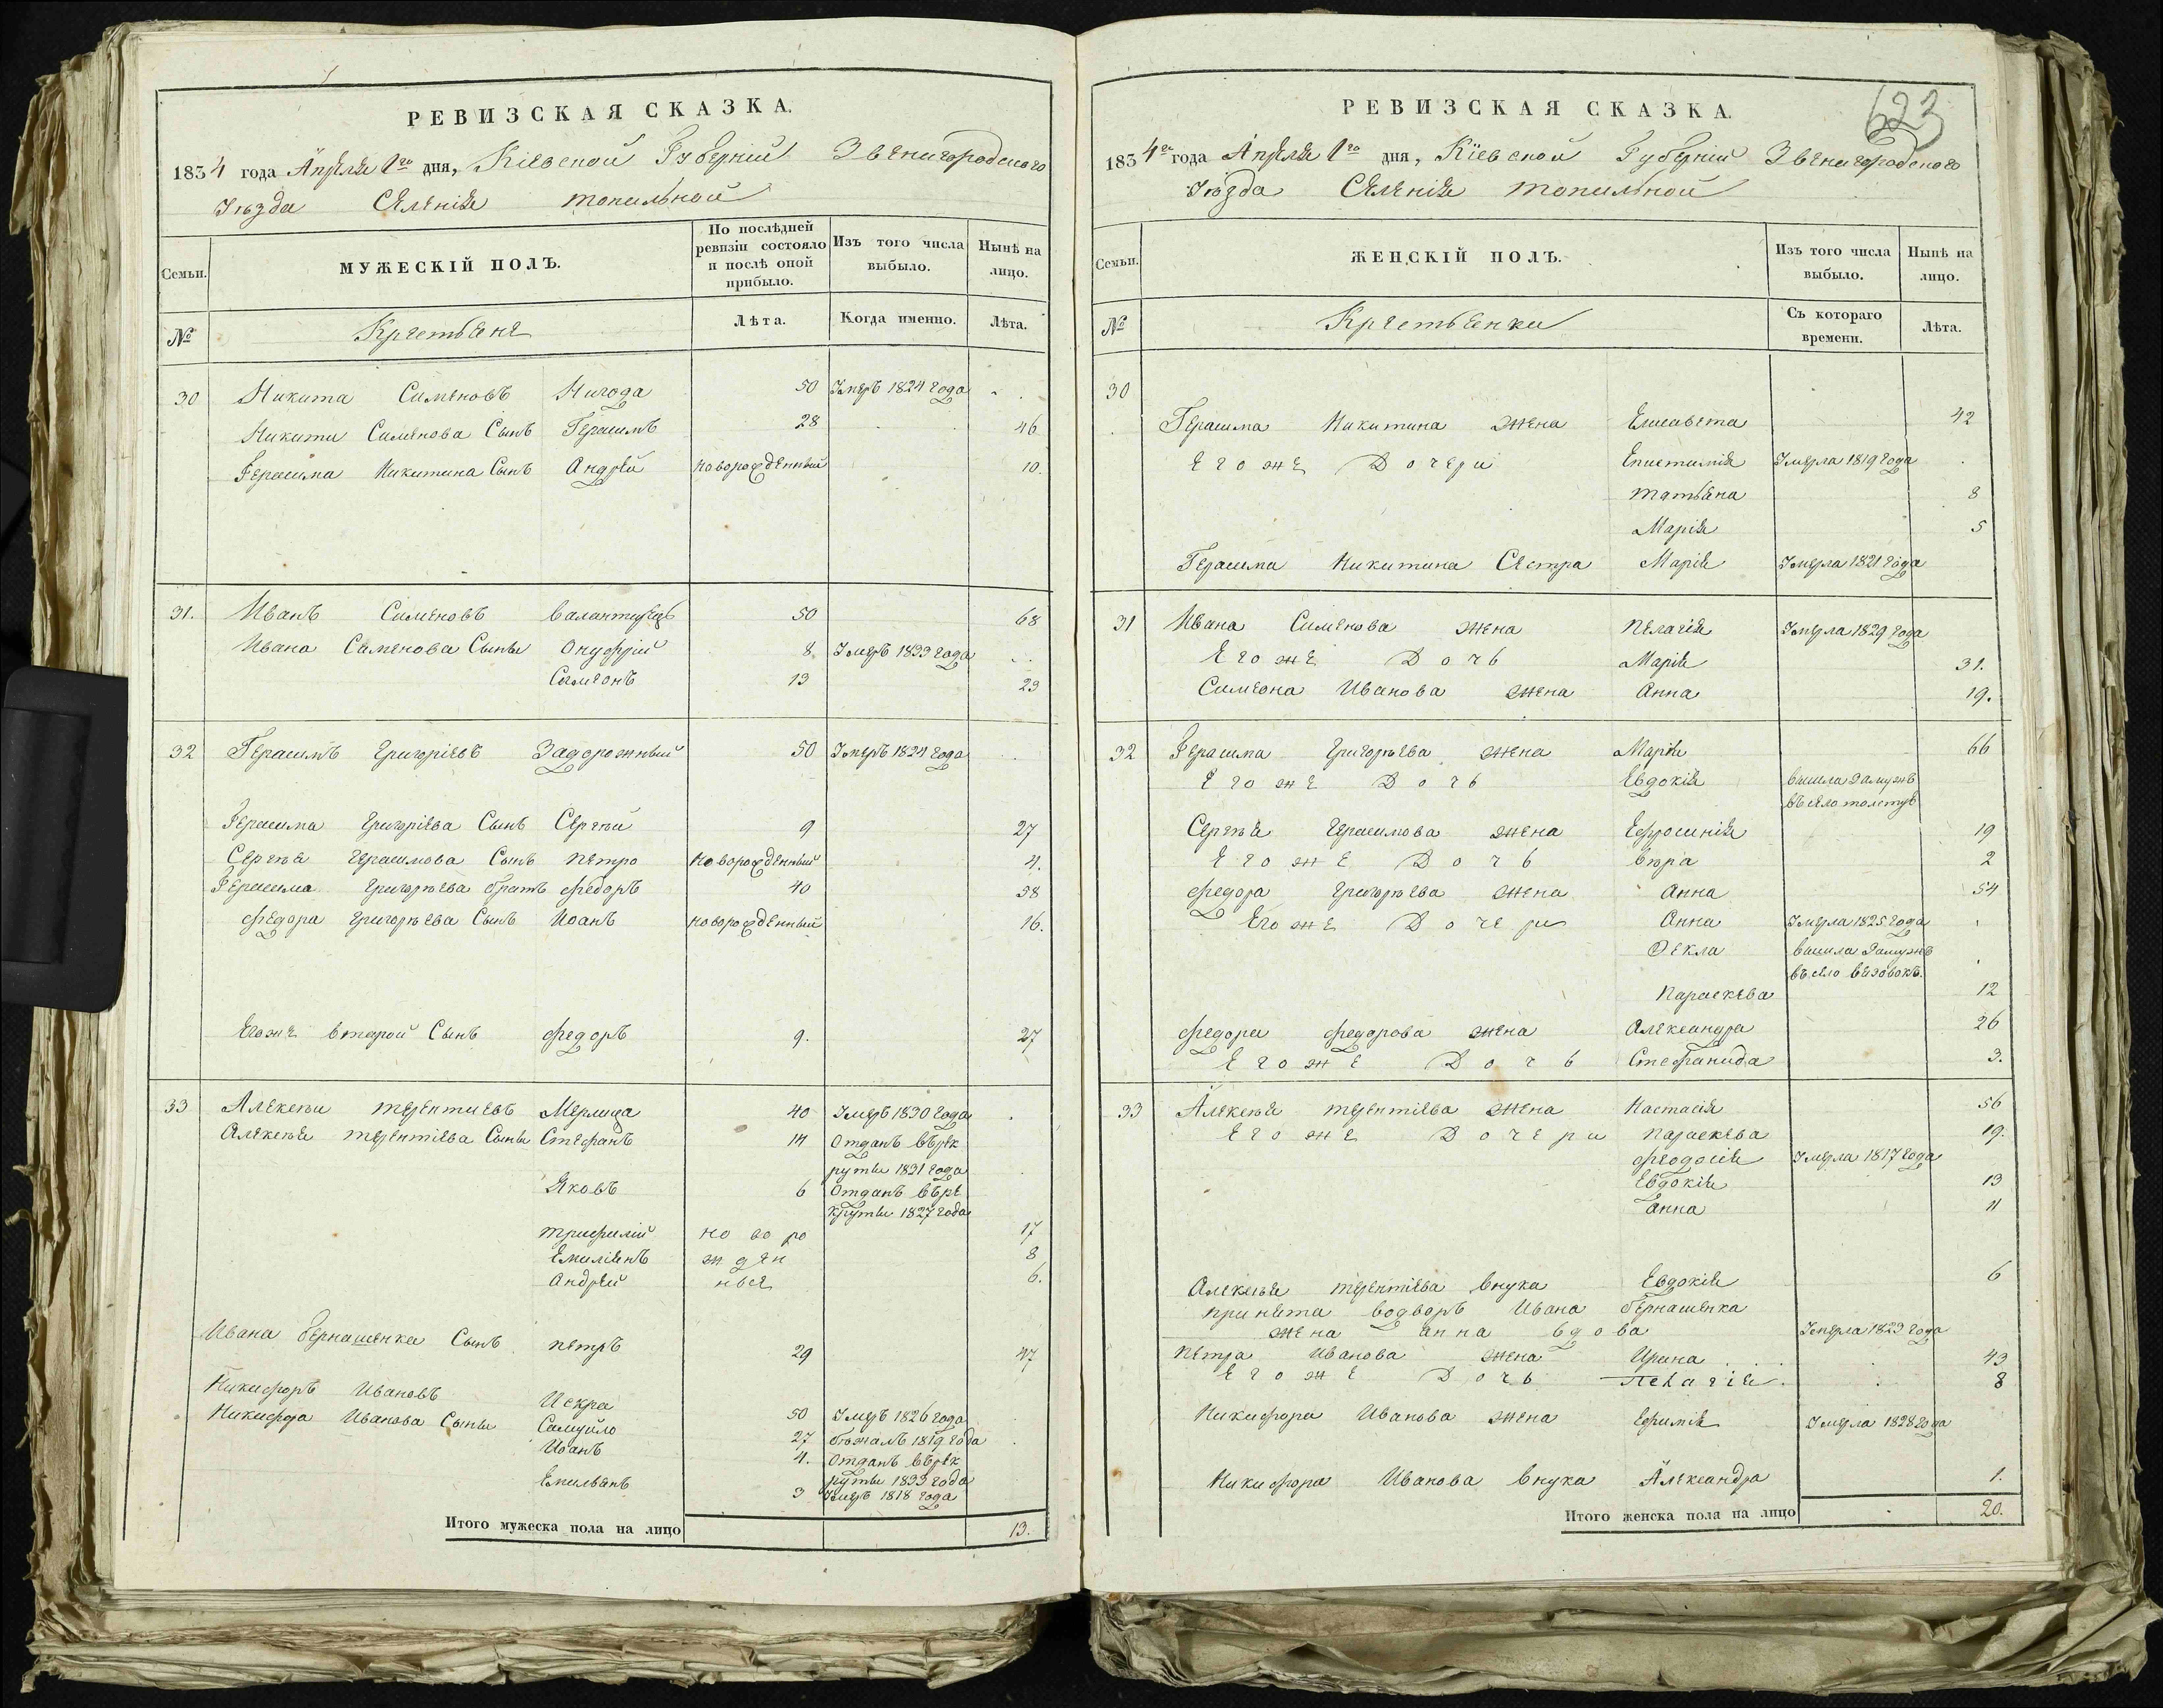 РЕВИЗСКАЯ СКАЗКА.
1834 года Апреля 1го дня, Кіевской Губерніи Звенигородского
Уезда Селенія топильной
Семьи.
МУЖЕСКІЙ ПОЛЪ.
По послѣдней ревизіи состояло и послѣ оной прибыло.
Изъ того числа выбыло.
Нынѣ на лицо.
№
Крестьяне
Лѣта.
Когда именно.
Лѣта.
30 Никита Сименовъ Нигода 50 Умеръ 1824 года
Никити Сименова Сынъ Герасимъ 28 46
Герасима Никитина Сынъ Андрей новорожденный 10.
31. Иванъ Сименовъ 50 68
Ивана Семенова Сыны Онуфрій 8 Умеръ 1833 года
Симеонъ 13 23
32 Герасимъ Григоріевъ Задорожный 50 Умеръ 1834 года
Герасима Григоріева Сынъ Сергей 9 27
Сергея Герасимова Сынъ петро новорожденный 4.
Герасима Григорьева братъ федоръ 40 58
федора Григорьева Сынъ Иоанъ новорожденный 16.
Егоже второй Сынъ федоръ 9. 27
33 Алексеи терентиевъ Мерлица 40 Умеръ 1830 года
Алексея терентіева Сыны Стефанъ 14 Отданъ върек
руты 1831 года
Яковъ 6 Отданъ върe
круты 1827 года
трифилій но во ро 17
Емиліянъ жден 8
Андрей ные 6.
Ивана бернашенка Сынъ петръ 29 47
Никифоръ Ивановъ Искра 50 Умеръ 1826 года
Никифора Иванова Сыны Самуило 27 бежалъ 1819 года
Иоанъ 4. Отданъ върек
руты 1833 года
Емильянъ 3 Умеръ 1818 года
Итого мужеска пола на лицо 13.
623
РЕВИЗСКАЯ СКАЗКА.
1834го года Апреля 1го дня, Кіевской Губерніи Звенигородского
Уезда Селенія топильной
Семьи.
ЖЕНСКІЙ ПОЛЪ.
Изъ того числа выбыло.
Нынѣ на лицо.
№
Крестьянки
Съ котораго времени.
Лѣта.
30
Герасима Никитина жена Елисавета 42
Егоже Дочери Епистимія Умерла 1819 года
татьяна 8
Марія 5
Герасима Никитина Сестра Марія Умерла 1821 года
31 Ивана Сименова жена пелагія Умерла 1829 года
Егоже Дочь Марія 31.
Симеона Иванова жена Анна 19.
32 Герасима Григорьева жена Марія 66
Егоже Дочь Евдокія вышла замужъ
въ село
Сергея Герасимова жена Ефросинія 19
Егоже Дочь вера 2
федора Григорьева жена анна 54
Егоже Дочери Анна Умерла 1825 года
Фекла вышла замужъ
въ село
параскева 12
федора федорова жена Александра 26
Егоже Дочь Стефанида 3.
33 Алексея терентіева жена Настасія 56
Егоже Дочери параскева 19.
феодосія Умерла 1817 года
Евдокія 13
анна 11
Алексея терентіева внука Евдокія 6
принята водворъ Ивана бернашенка
жена анна вдова Умерла 1823 года
петра Иванова жена Ирина 43
Егоже Дочь пелагія 8
Никифора Иванова жена Ефимія Умерла 1828 года
Никифора Иванова внука Александра 1.
Итого женска пола на лицо 20.